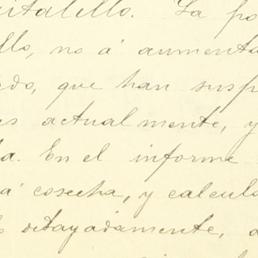 talillo. La po
llo, no á aumenta
do, que han susp
es actualmente, y
a. En el informe
á cosecha, y calcul
detayadamente, a